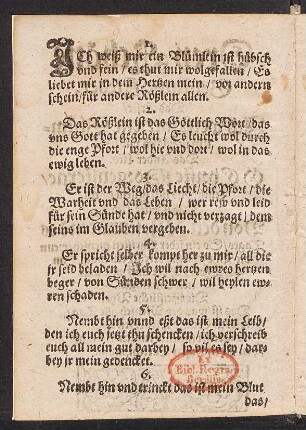 1.
ICh weiß mir ein Blümlein ist hübsch
vnd fein / es thut mir wolgefallen / Es
liebet mir in dem Hertzen mein / vor andern
schein / für andere Rößlein allen.
2.
Das Rößlein ist das Göttlich Wort / das
vns Gott hat gegeben / Es leucht wol durch
die enge Pfort / wol hie vnd dort / wol in das
ewig leben.
3.
Er ist der Weg / das Liecht / die Pfort / die
Warheit vnd das Leben / wer rew vnd leid
für sein Sünde hat / vnd nicht verzagt / dem
seins im Glauben vergeben.
4.
Er spricht selber kompt her zu mir / all die
jr seid beladen / Ich wil nach ewres hertzen
beger / von Sünden schwer / wil heylen ew-
ren schaden.
5.
Nembt hin vnnd eßt das ist mein Leib /
den ich euch jetzt thu schencken / ich verschreib
euch all mein gut darbey / so vil es sey / dar-
bey jr mein gedencket.
6.
Nembt hin vnd trinckt das ist mein Blut
das /
EX
Bibl. Regia
Berolin.